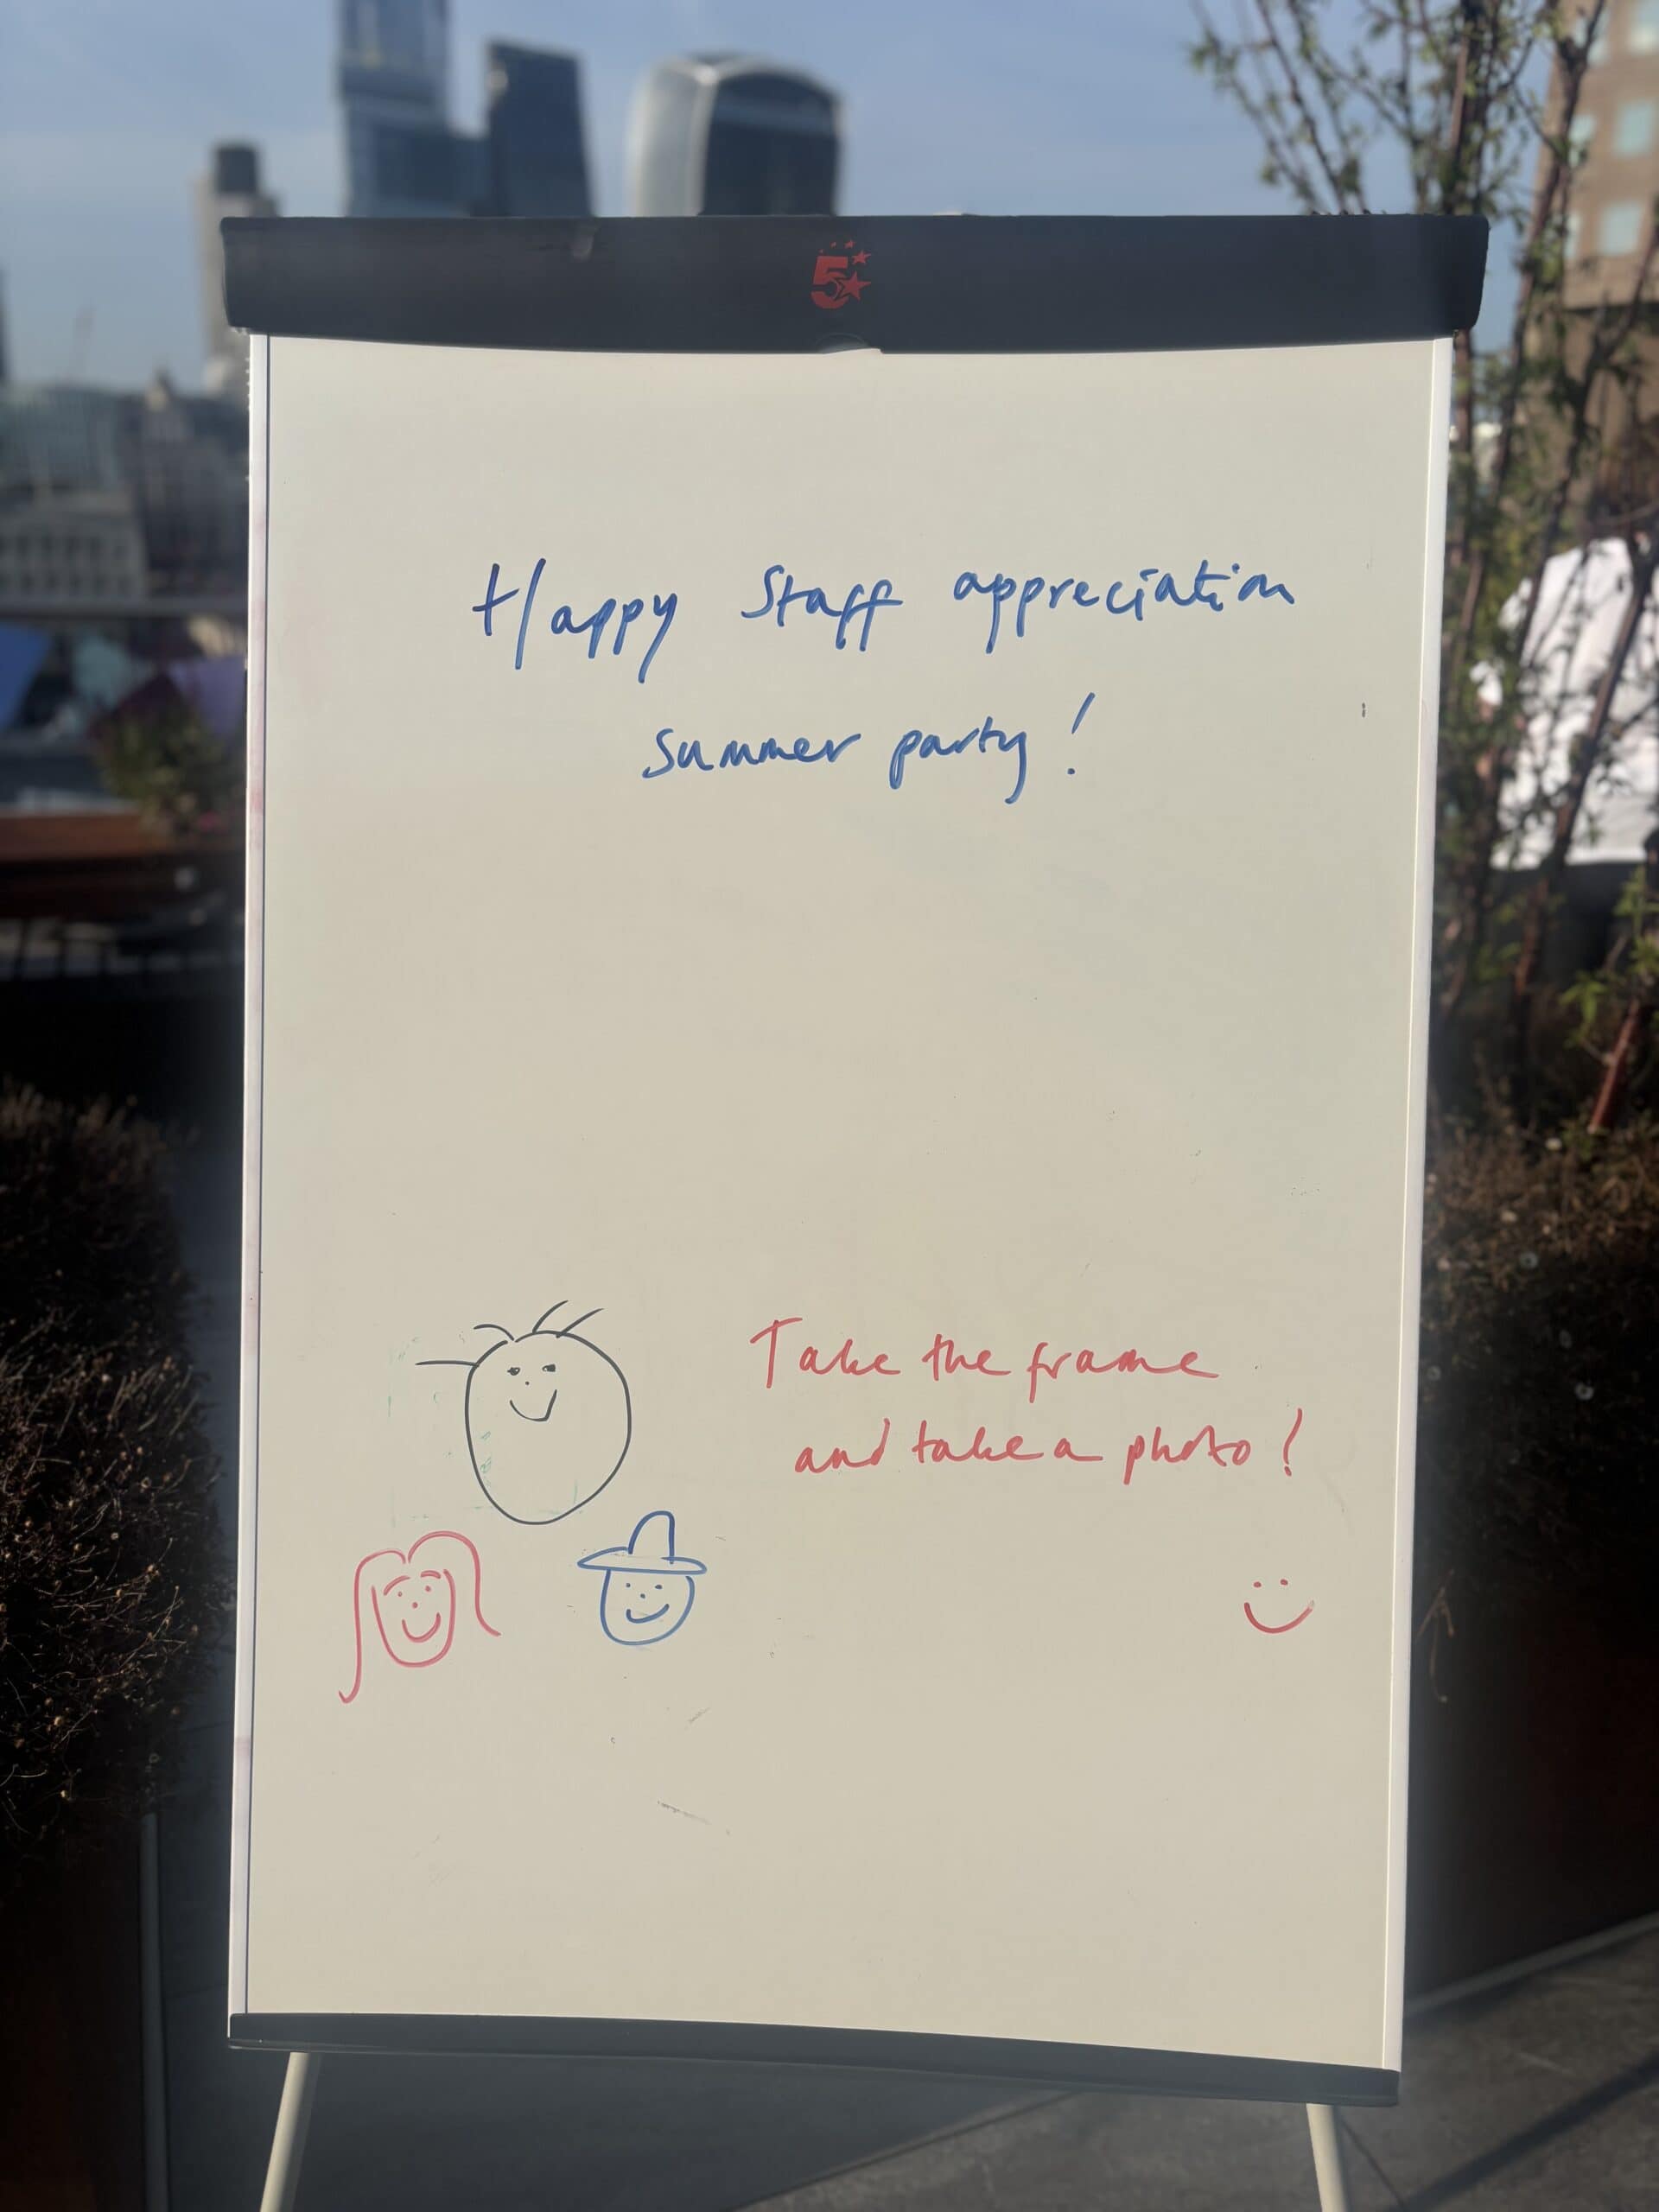 5
Happy Staff appreciation
summer party!
Take the frame
and take a photo!